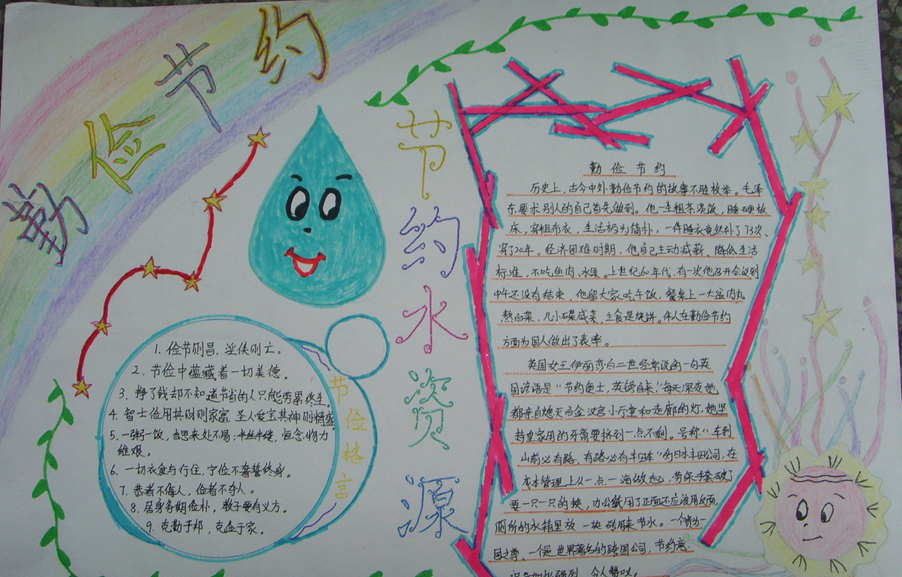 勤俭节约
节约水资源
节俭格言
1. 俭节则昌,淫佚则亡。
2. 节俭中蕴藏着一切美德。
3. 挣了钱却不知道节省的人只能劳累终生。
4. 智士俭用其财则家富 圣人爱宝其神则精盛
5. 一粥一饭,当思来处不易;半丝半缕,恒念物力
维艰。
6. 一切衣食与行住,宁俭不奢誓终身。
7. 恭者不侮人,俭者不夺人。
8. 居身务期俭朴,教子要有义方。
9. 克勤于邦,克俭于家。
勤俭节约
历史上,古今中外勤俭节约的故事不胜枚举。毛泽
东要求别人的自己首先做到。他一生粗茶淡饭,睡硬板
床,穿粗布衣,生活极为简朴,一件睡衣竟然补了73次、
穿了20年。经济困难时期,他自己主动减薪、降低生活
标准,不吃鱼肉、水果。上世纪60年代,有一次他召开会议到
中午还没有结束,他留大家吃午饭,餐桌上一大盆肉丸
熬白菜、几小碟咸菜,主食是烧饼。伟人在勤俭节约
方面为国人做出了表率。
英国女王伊丽莎白二世经常说的一句英
国谚语是"节约便士,英镑自来",每天深夜她
都亲自熄灭白金汉宫小厅堂和走廊的灯,她坚
持皇家用的牙膏要挤到一点不剩。号称"车到
山前必有路,有路必有丰田车"的日本丰田公司,在
成本管理上从一点一滴做起,劳保手套破了
要一只一只的换,办公纸用了正面还应该用反面,
厕所的水箱里放一块砖用来节水。一个贵为一
国之尊,一个是世界著名的跨国公司,节约意